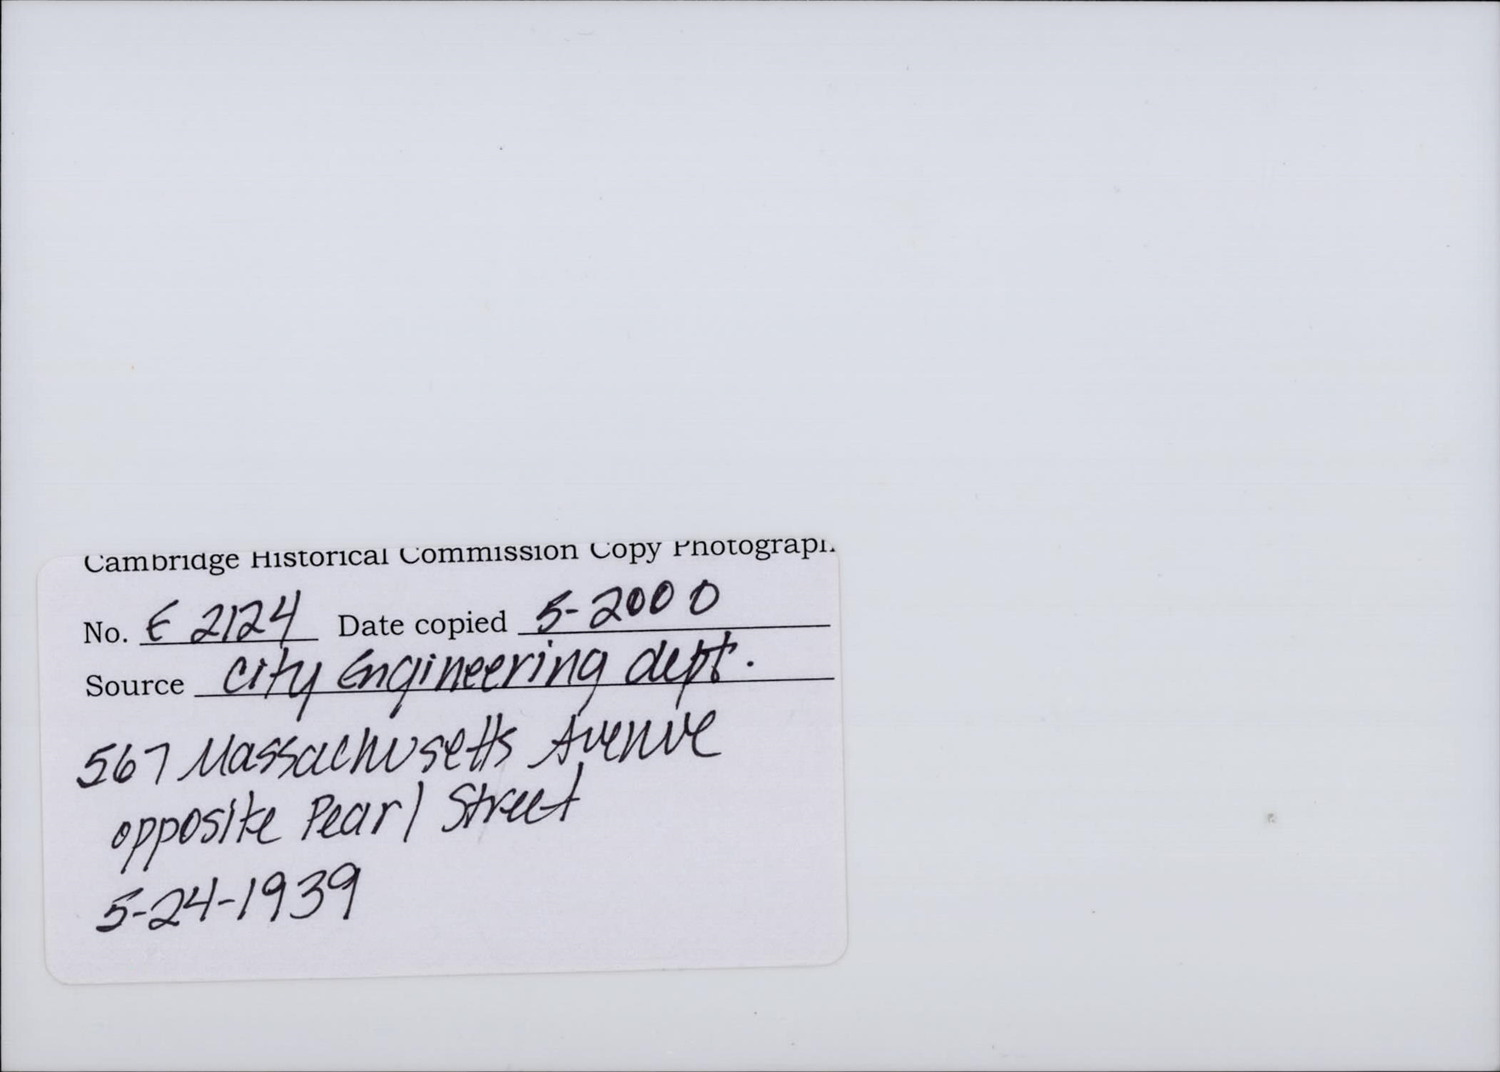 Cambridge Historical Commission Copy Photograph
No. E 2124 Date copied 5-2000
Source City Engineering dept.
567 Massachusetts Avenue
opposite Pearl Street
5-24-1939